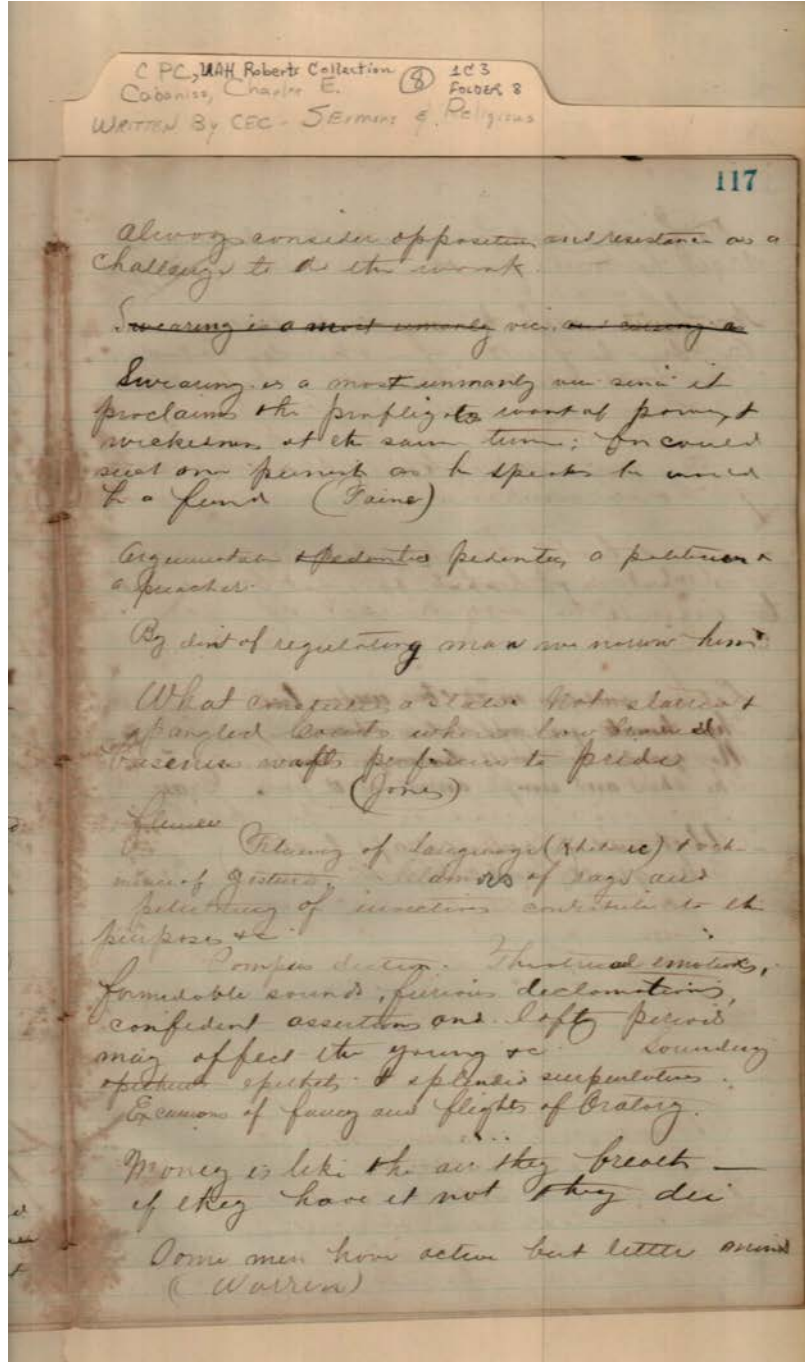 CPC, UAH Roberts Collection (8) 1C3
Cabaniss, Charles E. FOLDER 8
WRITTEN By CEC - SErmons & Religious
117
Always consider opposition and resistance as a
challenge to do the work.
Swearing is a most unmanly vice, and cursing a
Swearing is a most unmanly vice since it
proclaims the profligate want of power &
wickedness at the same time; for could
such one punish as he speaks he would
be a fiend (Faine)
Argumentative & pedantic pedantry, a politician &
a preacher.
By dint of regulating man we narrow him
What constitutes a state Not starred &
spangled Courts where low browed
Baseness wafts perfume to pride
(Jones)
Fluency of language (rhetoric) &
of gesture, clamors of rage and
petulancy of invectives contribute to the
purposes &c
Pompous diction. Theatrical emotions,
formidable sounds, furious declamations,
confident assertions and lofty periods
may affect the young &c Sounding
epithets & splendid superlatives.
Excursions of fancy and flights of Oratory.
Money is like the air they breath —
if they have it not they die
Some men have active but little mind
(Warren)